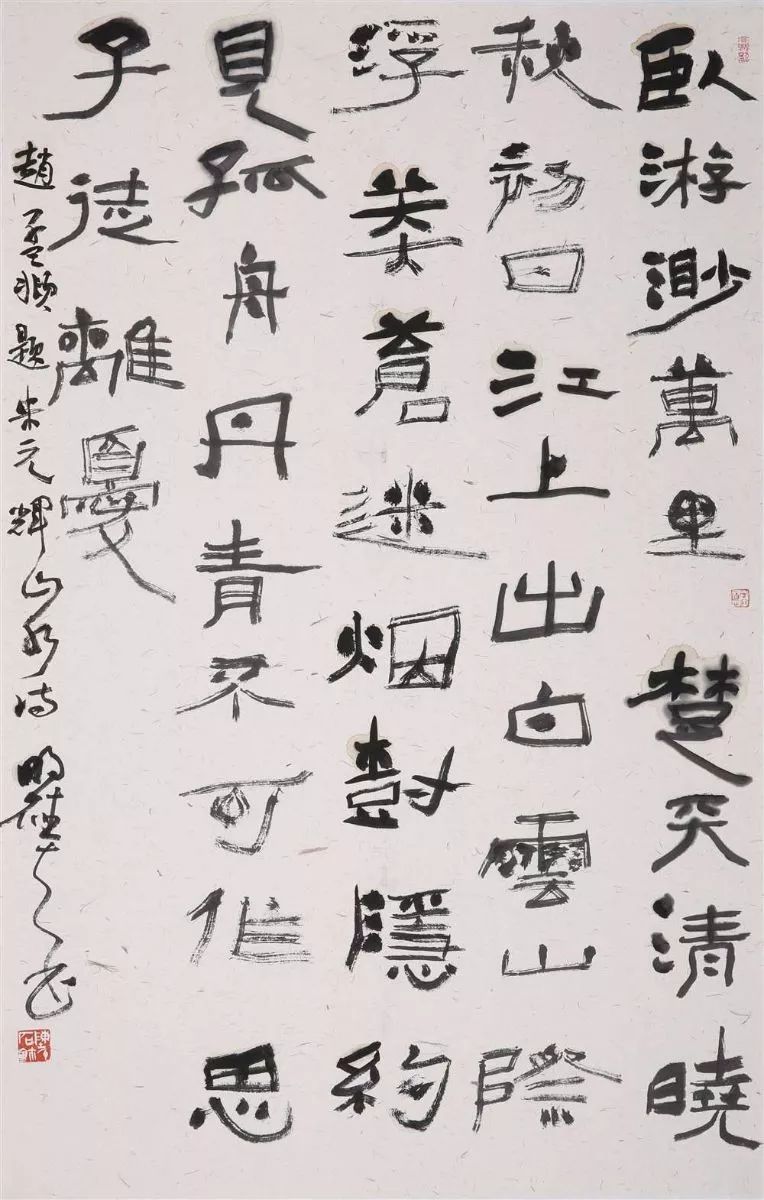 臥游渺萬里楚天清曉
秋初日江上出白雲山際
浮蒼迷烟樹隱約
見孤舟丹青不可作思
子徒離憂
趙孟頫題米元輝山水詩